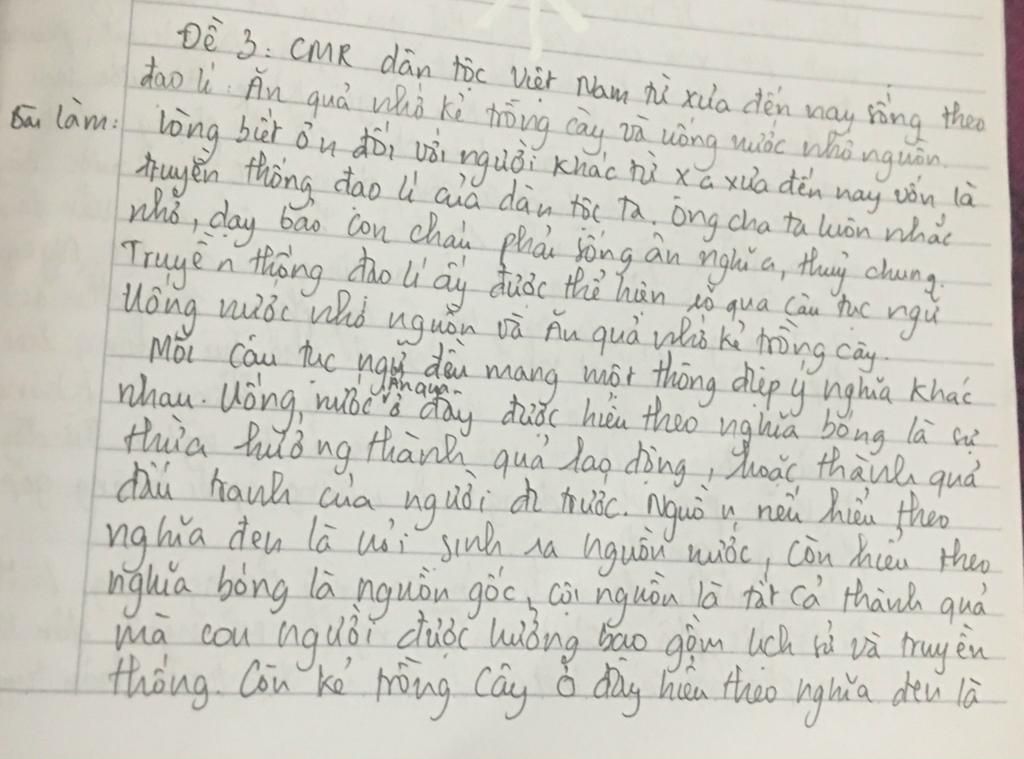 Đề 3: CMR dân tộc Việt Nam từ xưa đến nay sống theo
đạo lí. Ăn quả nhớ kẻ trồng cây và uống nước nhớ nguồn.
Bài làm: Lòng biết ơn đối với người khác từ xa xưa đến nay vốn là
truyền thống đạo lí của dân tộc ta. Ông cha ta luôn nhắc
nhở, dạy bảo con cháu phải sống ân nghĩa, thuỷ chung.
Truyền thống đạo lí ấy được thể hiện rõ qua câu tục ngữ
Uống nước nhớ nguồn và Ăn quả nhớ kẻ trồng cây.
Mỗi câu tục ngữ đều mang một thông điệp ý nghĩa khác
nhau. Uống nước, Ăn quả ở đây được hiểu theo nghĩa bóng là sự
thừa hưởng thành quả lao động, hoặc thành quả
đấu tranh của người đi trước. Nguồn nếu hiểu theo
nghĩa đen là nơi sinh ra nguồn nước, còn hiểu theo
nghĩa bóng là nguồn gốc, cội nguồn là tất cả thành quả
mà con người được hưởng bao gồm lịch sử và truyền
thống. Còn kẻ trồng cây ở đây hiểu theo nghĩa đen là